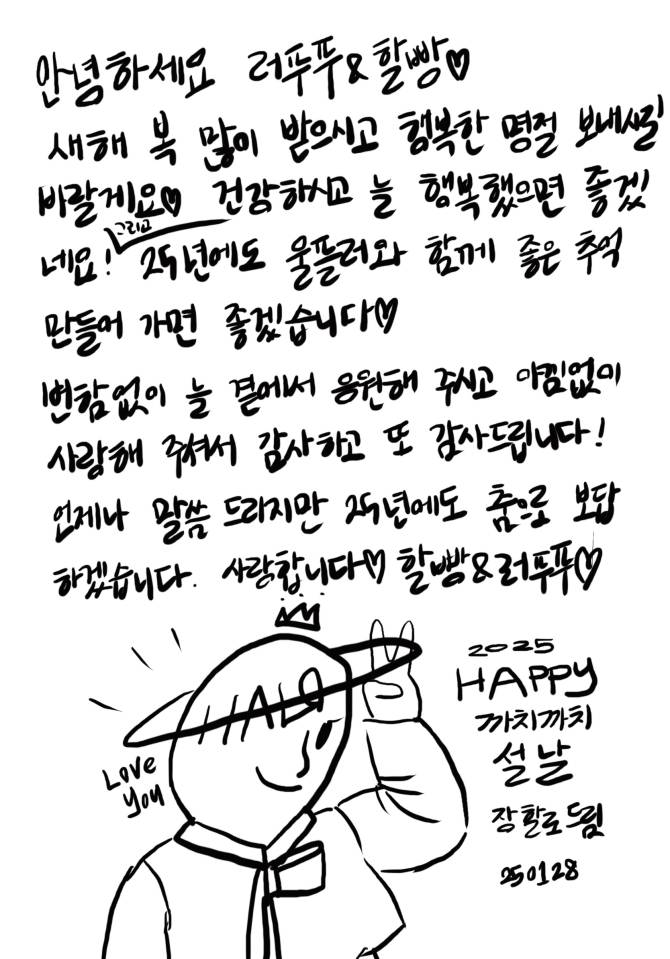 안녕하세요 러푸푸&할빵♡
새해 복 많이 받으시고 행복한 명절 보내시길
바랄게요♡ 건강하시고 늘 행복했으면 좋겠
네요! 그리고 25년에도 울플러와 함께 좋은 추억
만들어 가면 좋겠습니다♡
변함없이 늘 곁에서 응원해 주시고 아낌없이
사랑해 주셔서 감사하고 또 감사드립니다!
언제나 말씀 드리지만 25년에도 춤으로 보답
하겠습니다. 사랑합니다♡ 할빵&러푸푸♡
HALO
Love
you
2025
HAPPY
까치까치
설날
장할로드림
250128